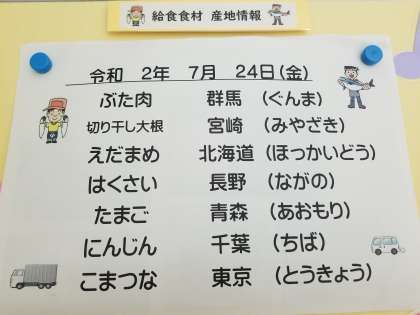 給食食材 産地情報
令和 2年 7月 24日(金)
ぶた肉 群馬 (ぐんま)
切り干し大根 宮崎 (みやざき)
えだまめ 北海道 (ほっかいどう)
はくさい 長野 (ながの)
たまご 青森 (あおもり)
にんじん 千葉 (ちば)
こまつな 東京 (とうきょう)